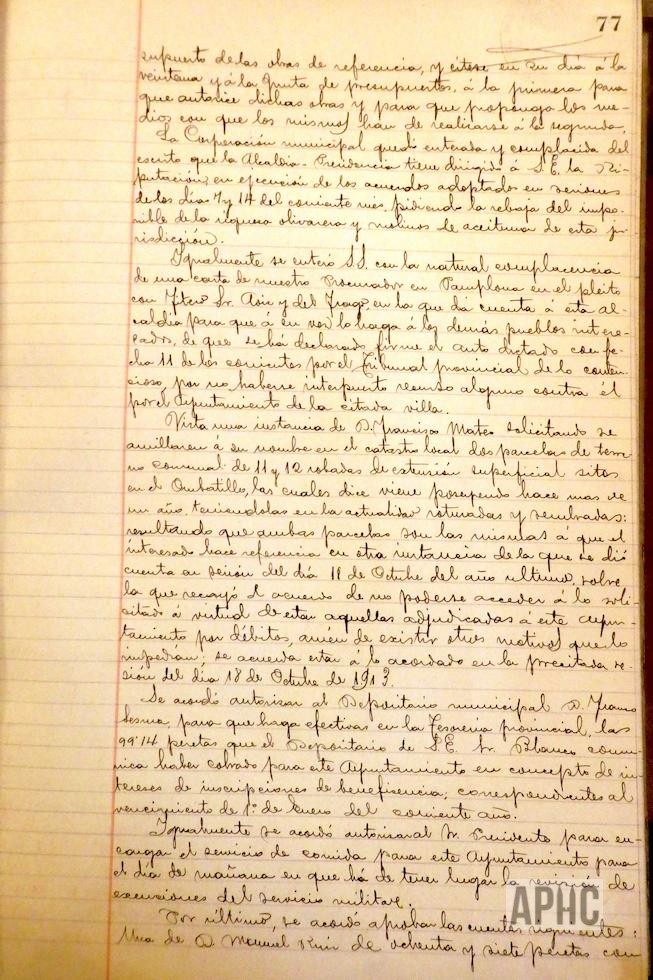 77
supuesto de las obras de referencia, y cítese en su día á la
veintena y á la Junta de presupuestos, á la primera para
que autorice dichas obras y para que proponga los me-
dios con que los mismos han de realizarse á la segunda.
La Corporación municipal quedó enterada y complacida del
escrito que la Alcaldía-Presidencia tiene dirigido á S.E. la Di-
putación, en ejecución de los acuerdos adoptados en sesiones
de los días 7 y 14 del corriente mes, pidiendo la rebaja del impo-
nible de la riqueza olivarera y molinos de aceituna de esta ju-
risdicción.
Igualmente se enteró S.S. con la natural complacencia
de una carta de nuestro Procurador en Pamplona en el pleito
con Fitero Sr. en la que dá cuenta á esta al-
caldía para que á su vez lo haga á los demás pueblos intere-
sados, de que se há declarado firme el auto dictado con fe-
cha 11 de los corrientes por el Tribunal provincial de lo conten-
cioso, por no haberse interpuesto recurso alguno contra él
por el Ayuntamiento de la citada villa.
Vista una instancia de D. Francisco Mateo solicitando se
amillaren á su nombre en el catastro local dos parcelas de terre-
no comunal de 11 y 12 robadas de extensión superficial sitos
en el Ombatillo, las cuales dice viene poseyendo hace mas de
un año, teniéndolas en la actualidad roturadas y sembradas:
resultando que ambas parcelas son las mismas á que el
interesado hace referencia en otra instancia de la que se dió
cuenta en sesión del día 18 de Octubre del año último, sobre
la que recayó el acuerdo de no poderse acceder á lo soli-
citado á virtud de estar aquellas adjudicadas á este Ayun-
tamiento por débitos, amén de existir otros motivos que lo
impedían; se acuerda estar á lo acordado en la precitada se-
sión del día 18 de Octubre de 1913.
Se acordó autorizar al Depositario municipal D.
Sesma, para que haga efectivas en la Tesorería provincial, las
99'14 pesetas que el Depositario de S.E. Sr. Blanco comu-
nica haber cobrado para este Ayuntamiento en concepto de in-
tereses de inscripciones de beneficencia, correspondientes al
vencimiento de 1º de Enero del corriente año.
Igualmente se acordó autorizar al Sr. Presidente para en-
cargar el servicio de comida para este Ayuntamiento para
el día de mañana en que há de tener lugar la revisión de
excenciones del servicio militar.
Por último, se acordó aprobar las cuentas siguientes:
Una de D. Manuel Ruiz de ochenta y siete pesetas con
APHC